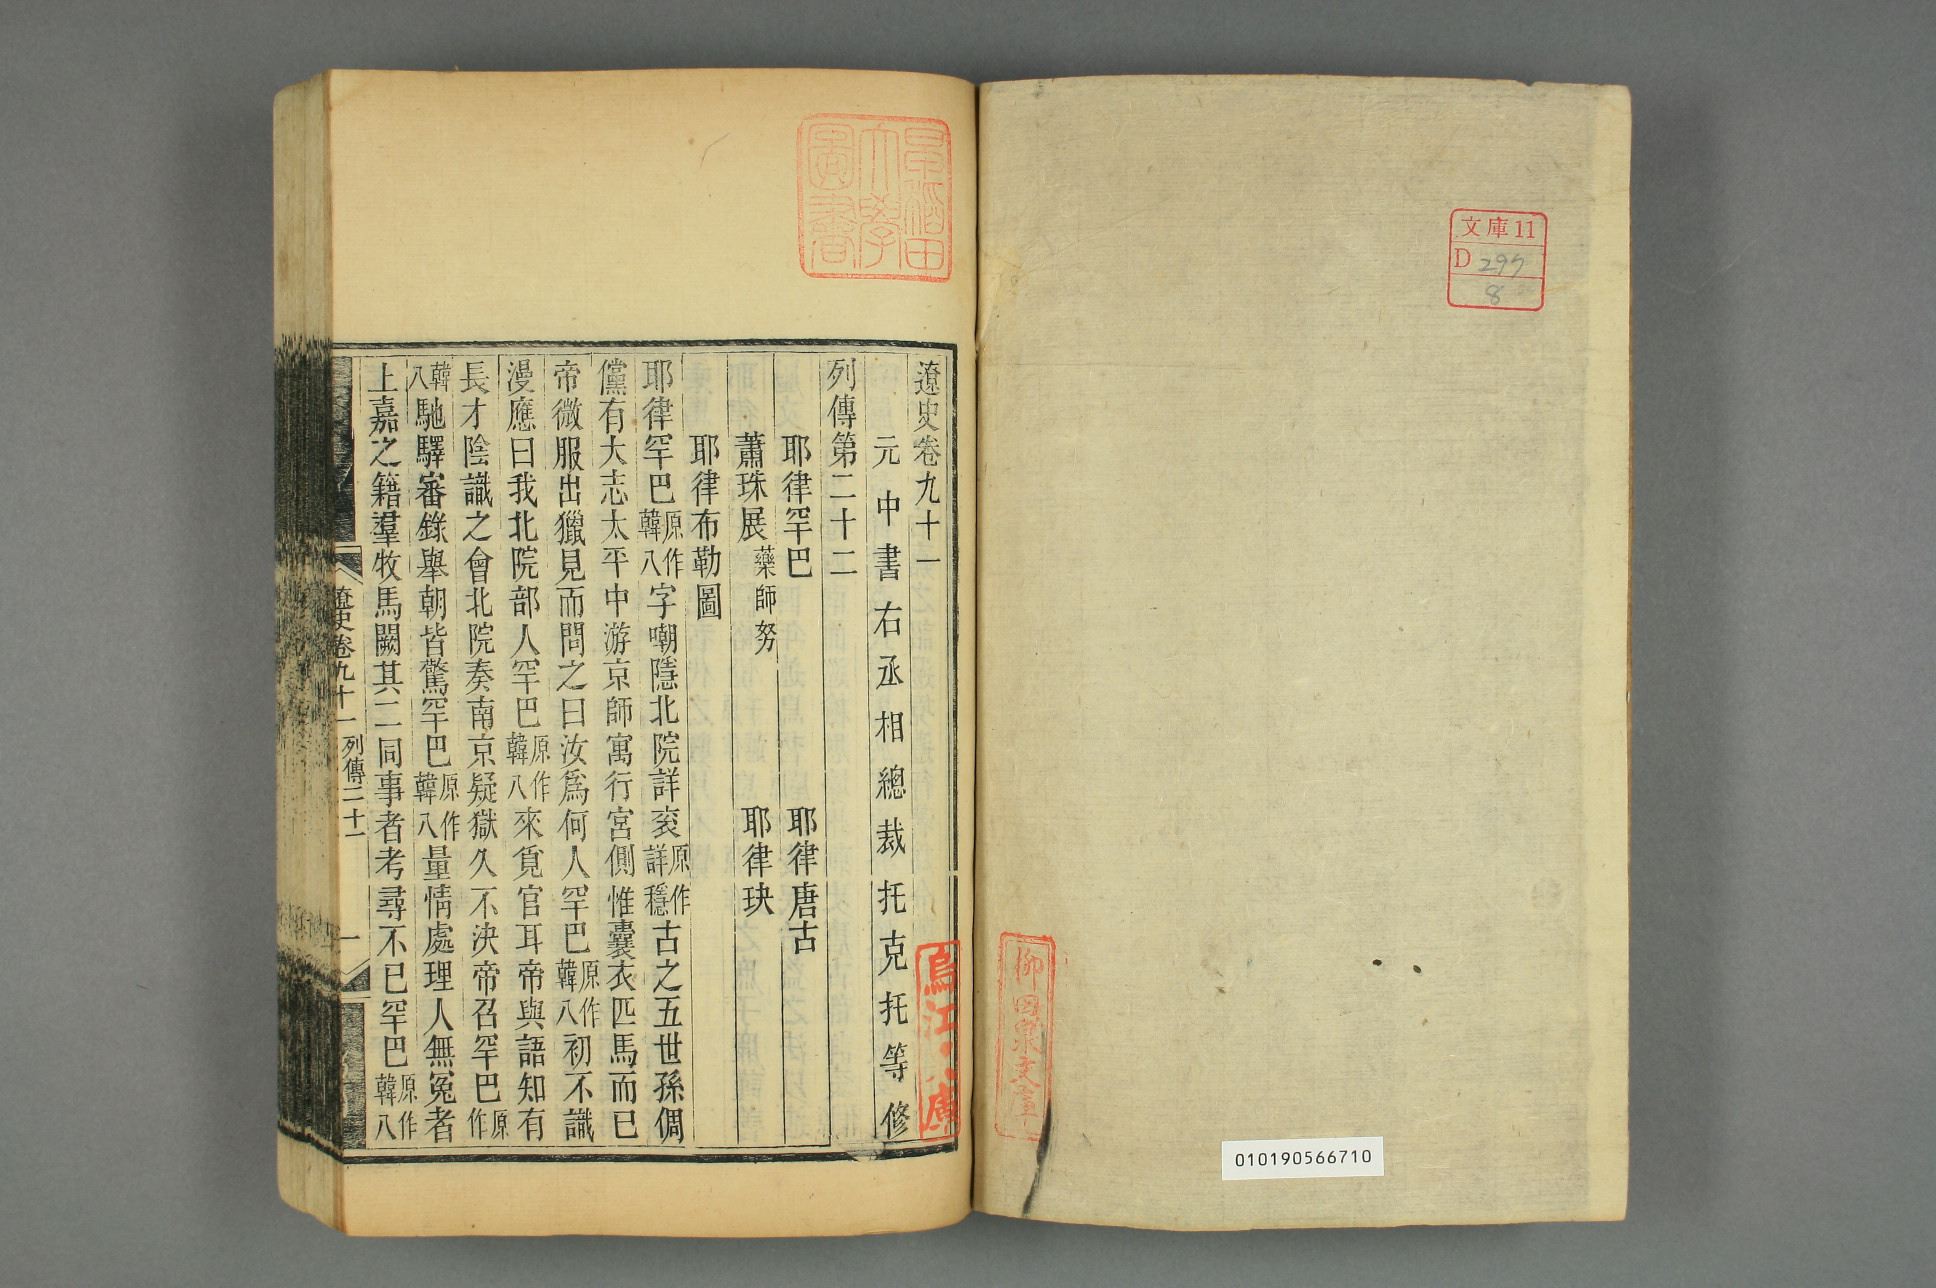 文庫11
D 297
8
010190566710
早稲田
大學
圖書
遼史卷九十一
元中書右丞相總裁托克托等修
列傳第二十二
耶律罕巴 耶律唐古
蕭珠展 藥師努 耶律玦
耶律布勒圖
耶律罕巴原作韓八字嘲隱北院詳衮原作詳穩古之五世孫倜
儻有大志太平中游京師寓行宮側惟囊衣匹馬而已
帝微服出獵見而問之曰汝爲何人罕巴原作韓八初不識
漫應曰我北院部人罕巴原作韓八來覓官耳帝與語知有
長才陰識之會北院奏南京疑獄久不決帝召罕巴原作
韓八馳驛審錄舉朝皆驚罕巴原作韓八量情處理人無冤者
上嘉之籍羣牧馬闕其二同事者考尋不已罕巴原作韓八
遼史卷九十一 列傳二十一 一